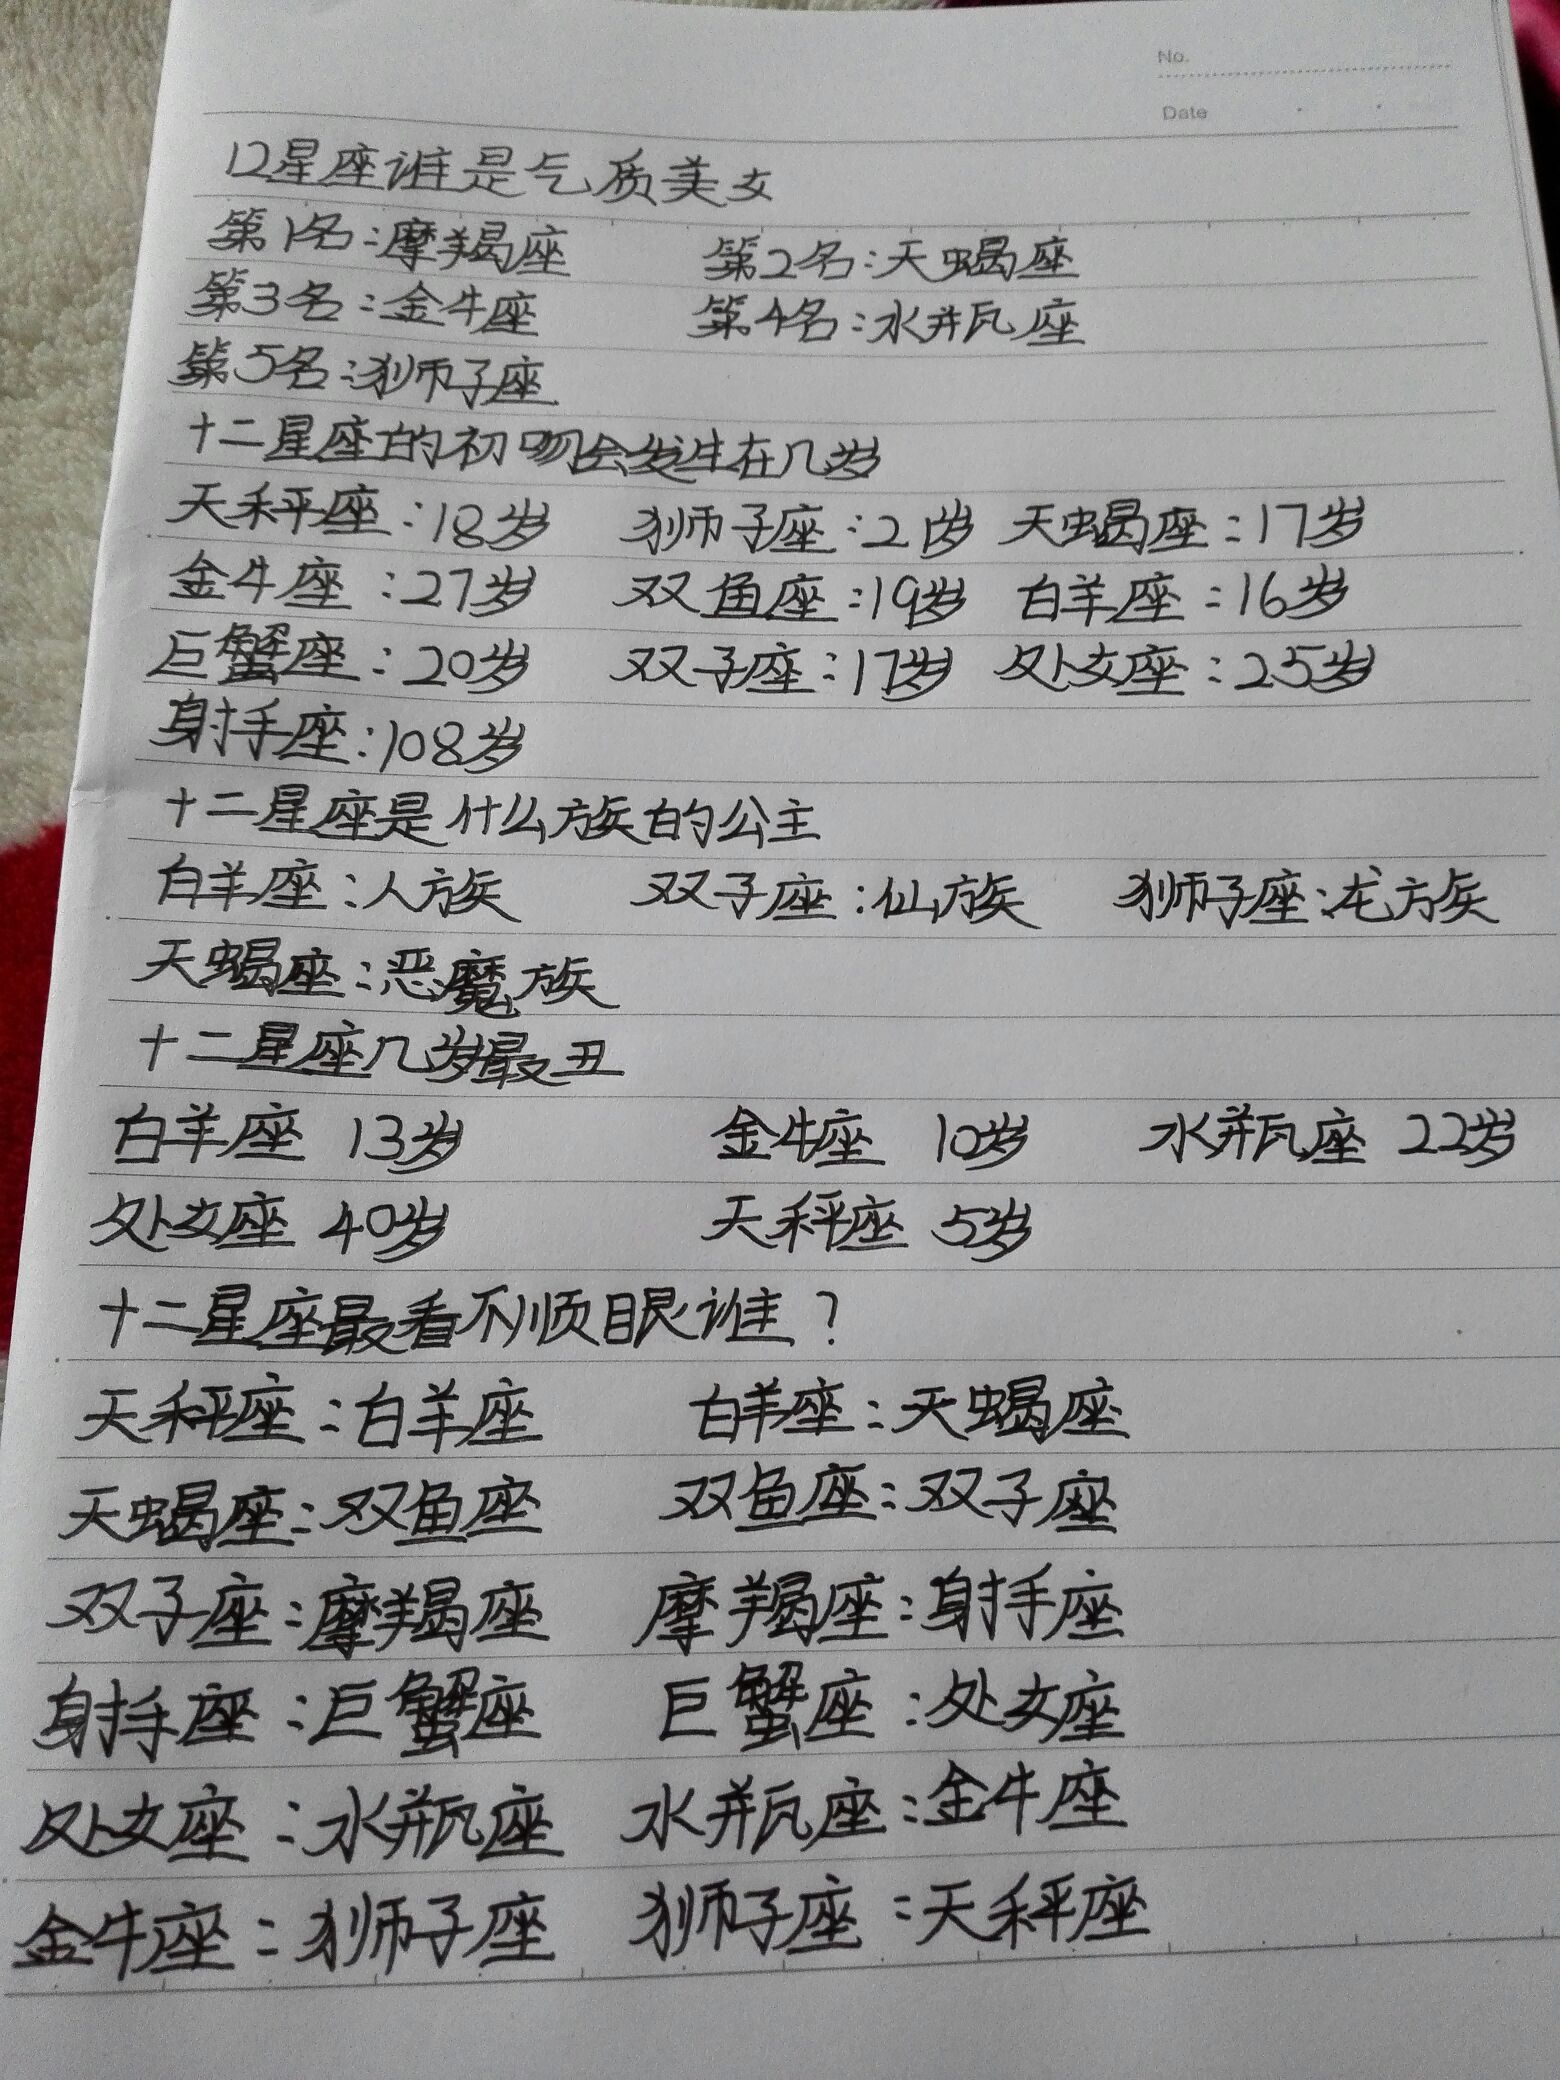 No.
Date
12星座谁是气质美女
第1名:摩羯座 第2名:天蝎座
第3名:金牛座 第4名:水瓶座
第5名:狮子座
十二星座的初吻会发生在几岁
天秤座:18岁 狮子座:21岁 天蝎座:17岁
金牛座:27岁 双鱼座:19岁 白羊座:16岁
巨蟹座:20岁 双子座:17岁 处女座:25岁
射手座:108岁
十二星座是什么族的公主
白羊座:人族 双子座:仙族 狮子座:龙族
天蝎座:恶魔族
十二星座几岁最丑
白羊座 13岁 金牛座 10岁 水瓶座 22岁
处女座 40岁 天秤座 5岁
十二星座最看不顺眼谁?
天秤座:白羊座 白羊座:天蝎座
天蝎座:双鱼座 双鱼座:双子座
双子座:摩羯座 摩羯座:射手座
射手座:巨蟹座 巨蟹座:处女座
处女座:水瓶座 水瓶座:金牛座
金牛座:狮子座 狮子座:天秤座